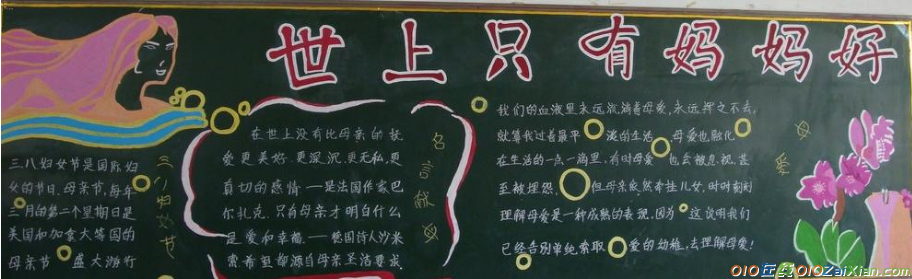 世上只有妈妈好
三八妇女节是国际妇
女的节日，母亲节，每年
三月的第二个星期日是
美国和加拿大等国的
母亲节 盛大游行
三八妇女节
在世上没有比母亲的抚
爱更美好.更深沉.更无私.更
真切的感情——是法国作家巴
尔扎克.只有母亲才明白什么
是爱和幸福.——德国诗人沙米
索希里都源自母亲圣洁要求
名言献母
我们的血液里永远流淌着母爱，永远挥之不去.
就算我过着最平淡的生活，母爱也融化
在生活的一点一滴里.有时母爱也会被忽视.甚
至被埋怨.但母亲依然牵挂儿女，时时刻刻
理解母爱是一种成熟的表现.因为 这说明我们
已经告别单纯索取 爱的幼稚.去理解母爱!
母爱
010在线 010ZaiXian.com